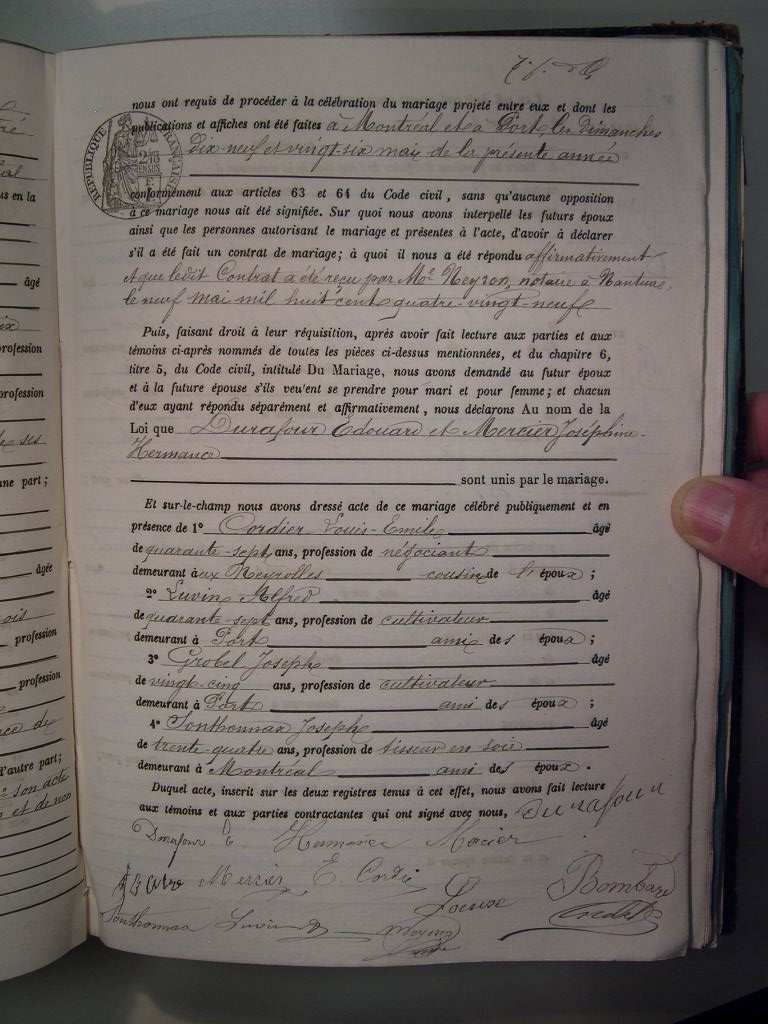 nous ont requis de procéder à la célébration du mariage projeté entre eux et dont les
publications et affiches ont été faites à Montréal et à Port les Dimanches
dix-neuf et vingt-six mai de la présente année
conformément aux articles 63 et 64 du Code civil, sans qu'aucune opposition
à ce mariage nous ait été signifiée. Sur quoi nous avons interpellé les futurs époux
ainsi que les personnes autorisant le mariage et présentes à l'acte, d'avoir à déclarer
s'il a été fait un contrat de mariage; à quoi il nous a été répondu affirmativement
et que ledit Contrat a été reçu par Me Neyron, notaire à Nantua,
le neuf mai mil huit cent quatre-vingt-neuf
Puis, faisant droit à leur réquisition, après avoir fait lecture aux parties et aux
témoins ci-après nommés de toutes les pièces ci-dessus mentionnées, et du chapitre 6,
titre 5, du Code civil, intitulé Du Mariage, nous avons demandé au futur époux
et à la future épouse s'ils veulent se prendre pour mari et pour femme; et chacun
d'eux ayant répondu séparément et affirmativement, nous déclarons Au nom de la
Loi que Durafour Édouard et Mercier Joséphine-
Hermance
sont unis par le mariage.
Et sur-le-champ nous avons dressé acte de ce mariage célébré publiquement et en
présence de 1° Cordier Louis-Emile âgé
de quarante-sept ans, profession de négociant
demeurant aux Neyrolles cousin de l' époux;
2° Luvin Alfred âgé
de quarante-sept ans, profession de cultivateur
demeurant à Port ami des époux;
3° Grobel Joseph âgé
de vingt-cinq ans, profession de cultivateur
demeurant à Port ami des époux;
4° Sonthonnax Joseph âgé
de trente-quatre ans, profession de tisseur en soie
demeurant à Montréal ami des époux.
Duquel acte, inscrit sur les deux registres tenus à cet effet, nous avons fait lecture
aux témoins et aux parties contractantes qui ont signé avec nous, Durafour
Durafour E Hermance Mercier
Mercier E. Cordier
Bombard
Sonthonnax Luvin
RÉPUBLIQUE FRANÇAISE
âgé
profession
profession
une part;
âgée
profession
profession
d'autre part;
son acte
et de non